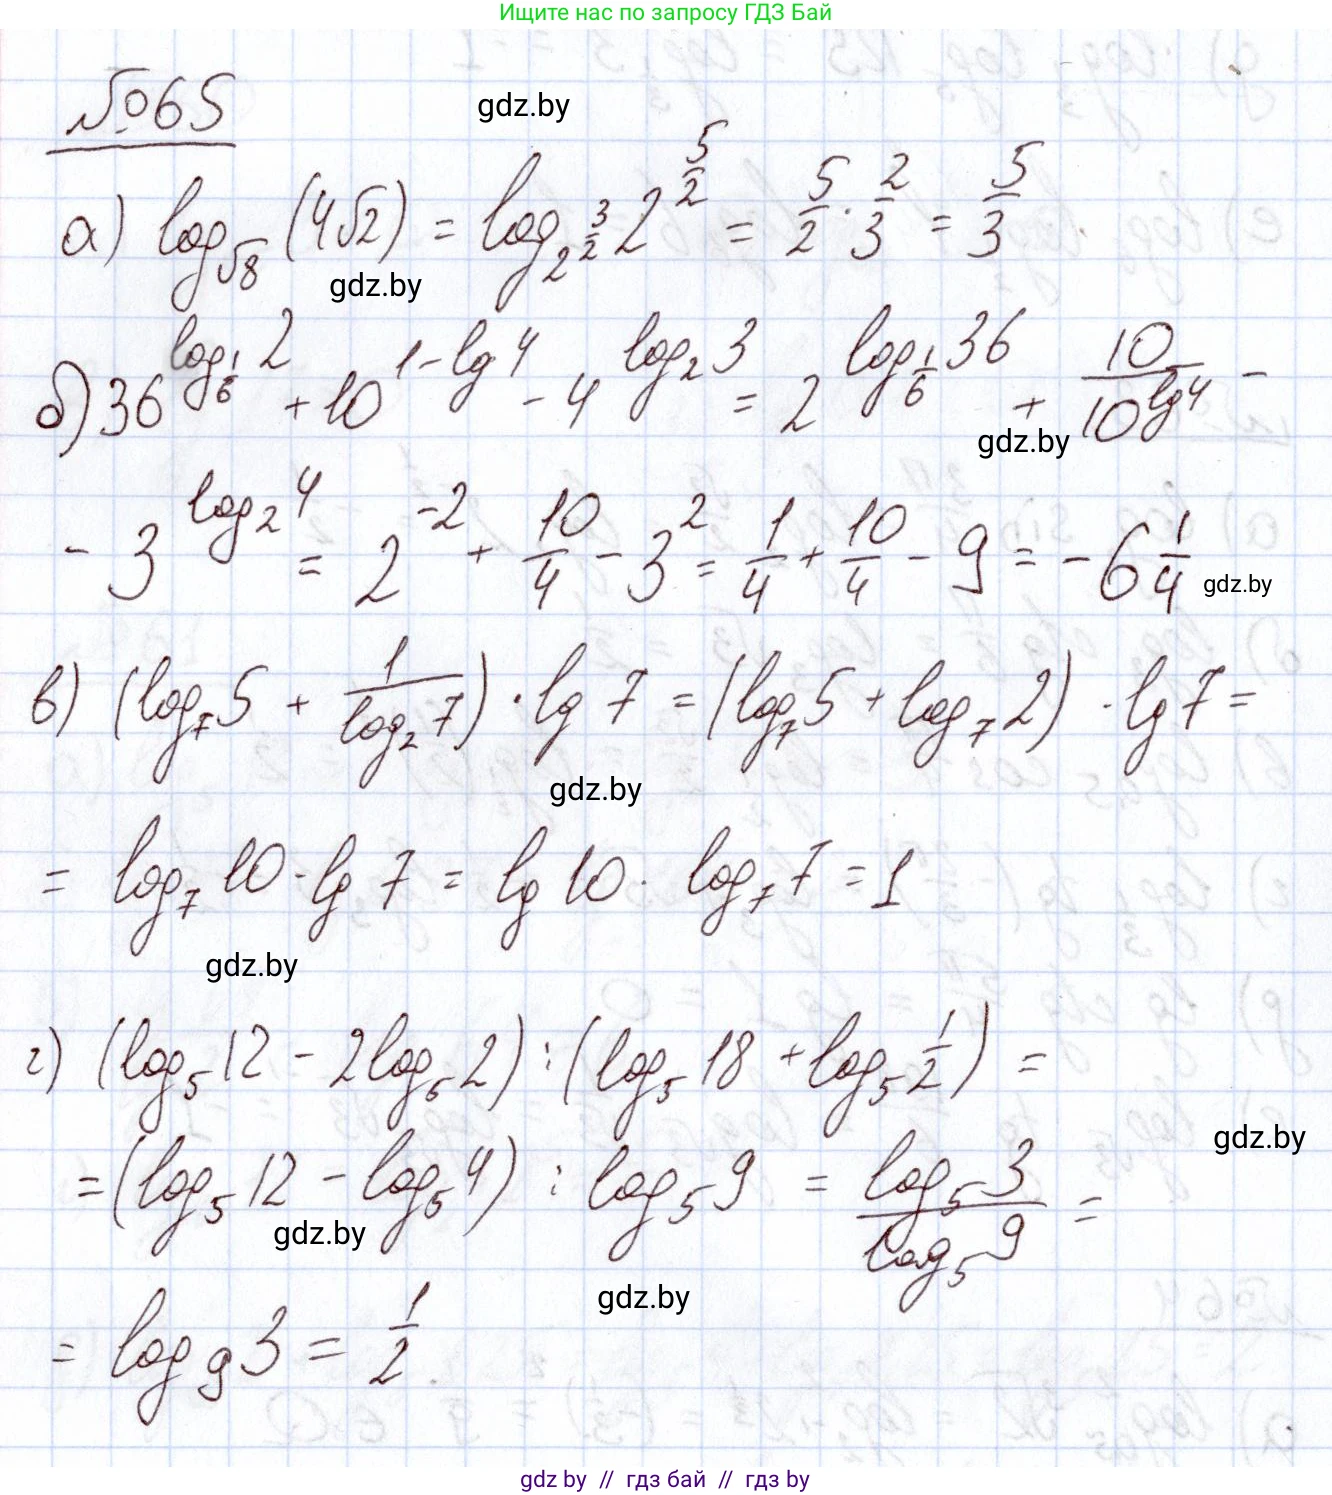 Ищите нас по запросу ГДЗ Бай
№65
gdz.by
а) log_{√8} (4√2) = log_{2^{3/2}} 2^{5/2} = 5/2 · 2/3 = 5/3
gdz.by
б) 36^{log_{1/6} 2} + 10^{1-lg 4} - 4^{log_2 3} = 2^{log_{1/6} 36} + 10/10^{lg 4} -
gdz.by
- 3^{log_2 4} = 2^{-2} + 10/4 - 3^2 = 1/4 + 10/4 - 9 = -6 1/4
gdz.by
в) (log_7 5 + 1/log_2 7) · lg 7 = (log_7 5 + log_7 2) · lg 7 =
gdz.by
= log_7 10 · lg 7 = lg 10 · log_7 7 = 1
gdz.by
г) (log_5 12 - 2log_5 2) : (log_5 18 + log_5 1/2) =
gdz.by
= (log_5 12 - log_5 4) : log_5 9 = log_5 3/log_5 9 =
gdz.by
gdz.by
= log_9 3 = 1/2.
gdz.by // гдз бай // гдз by